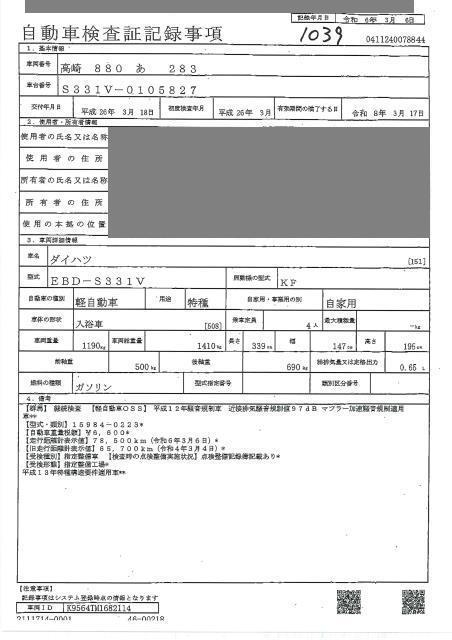 記録年月日 令和 6年 3月 6日
自動車検査証記録事項
1039
0411240078844
1. 基本情報
車両番号 高崎 880 あ 283
車台番号 S331V-0105827
交付年月日 平成26年 3月 18日 初度検査年月 平成26年 3月 有効期間の満了する日 令和 8年 3月 17日
2. 使用者・所有者情報
使用者の氏名又は名称
使用者の住所
所有者の氏名又は名称
所有者の住所
使用の本拠の位置
3. 車両詳細情報
車名 ダイハツ [151]
型式 EBD-S331V 原動機の型式 KF
自動車の種別 軽自動車 用途 特種 自家用・事業用の別 自家用
車体の形状 入浴車 [508] 乗車定員 4人 最大積載量 -kg
車両重量 1190kg 車両総重量 1410kg 長さ 339cm 幅 147cm 高さ 195cm
前軸重 500kg 後軸重 690kg 総排気量又は定格出力 0.65 L
燃料の種類 ガソリン 型式指定番号 類別区分番号
4. 備考
【群馬】 継続検査 【軽自動車OSS】 平成12年騒音規制車 近接排気騒音規制値97dB マフラー加速騒音規制適用
車**
【型式・類別】15984-0223*
【自動車重量税額】¥6,600*
【走行距離計表示値】78,500km(令和6年3月6日)*
【旧走行距離計表示値】65,700km(令和4年3月4日)*
【受検種別】指定整備車 【検査時の点検整備実施状況】点検整備記録簿記載あり*
【受検形態】指定整備工場*
平成13年特種構造要件適用車**
【注意事項】
記録事項はシステム登録時点の情報となります
車両ID K9564TM1682114
2111714-0001 46-00218